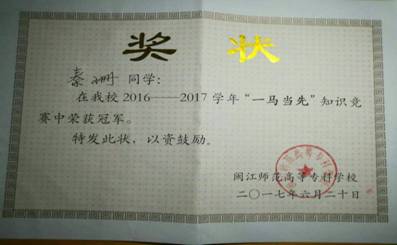 奖 状
秦珊 同学：
在我校2016——2017学年“一马当先”知识竞
赛中荣获冠军。
特发此状，以资鼓励。
闽江师范高等专科学校
二〇一七年六月二十日